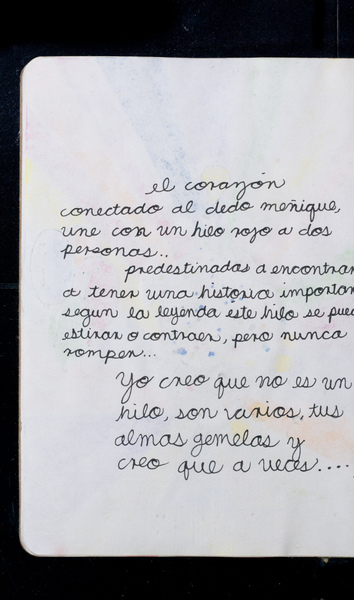 el corazón
conectado al dedo meñique,
une con un hilo rojo a dos
personas..
predestinadas a encontrar
a tener una historia importan
segun la leyenda este hilo se pued
estirar o contraer, pero nunca
romper...
Yo creo que no es un
hilo, son varios, tus
almas gemelas y
creo que a veces....